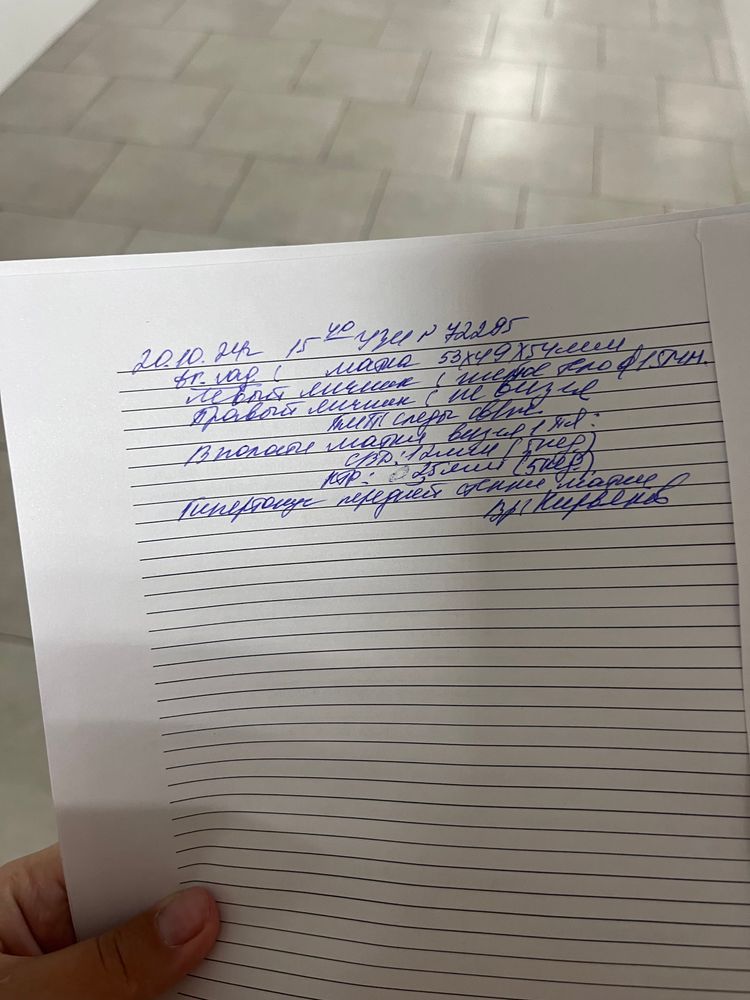 20.10.24г 15 40 УЗИ № 72295
матка 53х49х54мм
Левый яичник желтое тело ф 15мм.
Правый яичник не визуал
МТ следы своб.
В полости матки визуал 1 пл:
СВД: 12мм (5нед)
КТР: 25мм (5нед)
Гипертонус передней стенки матки